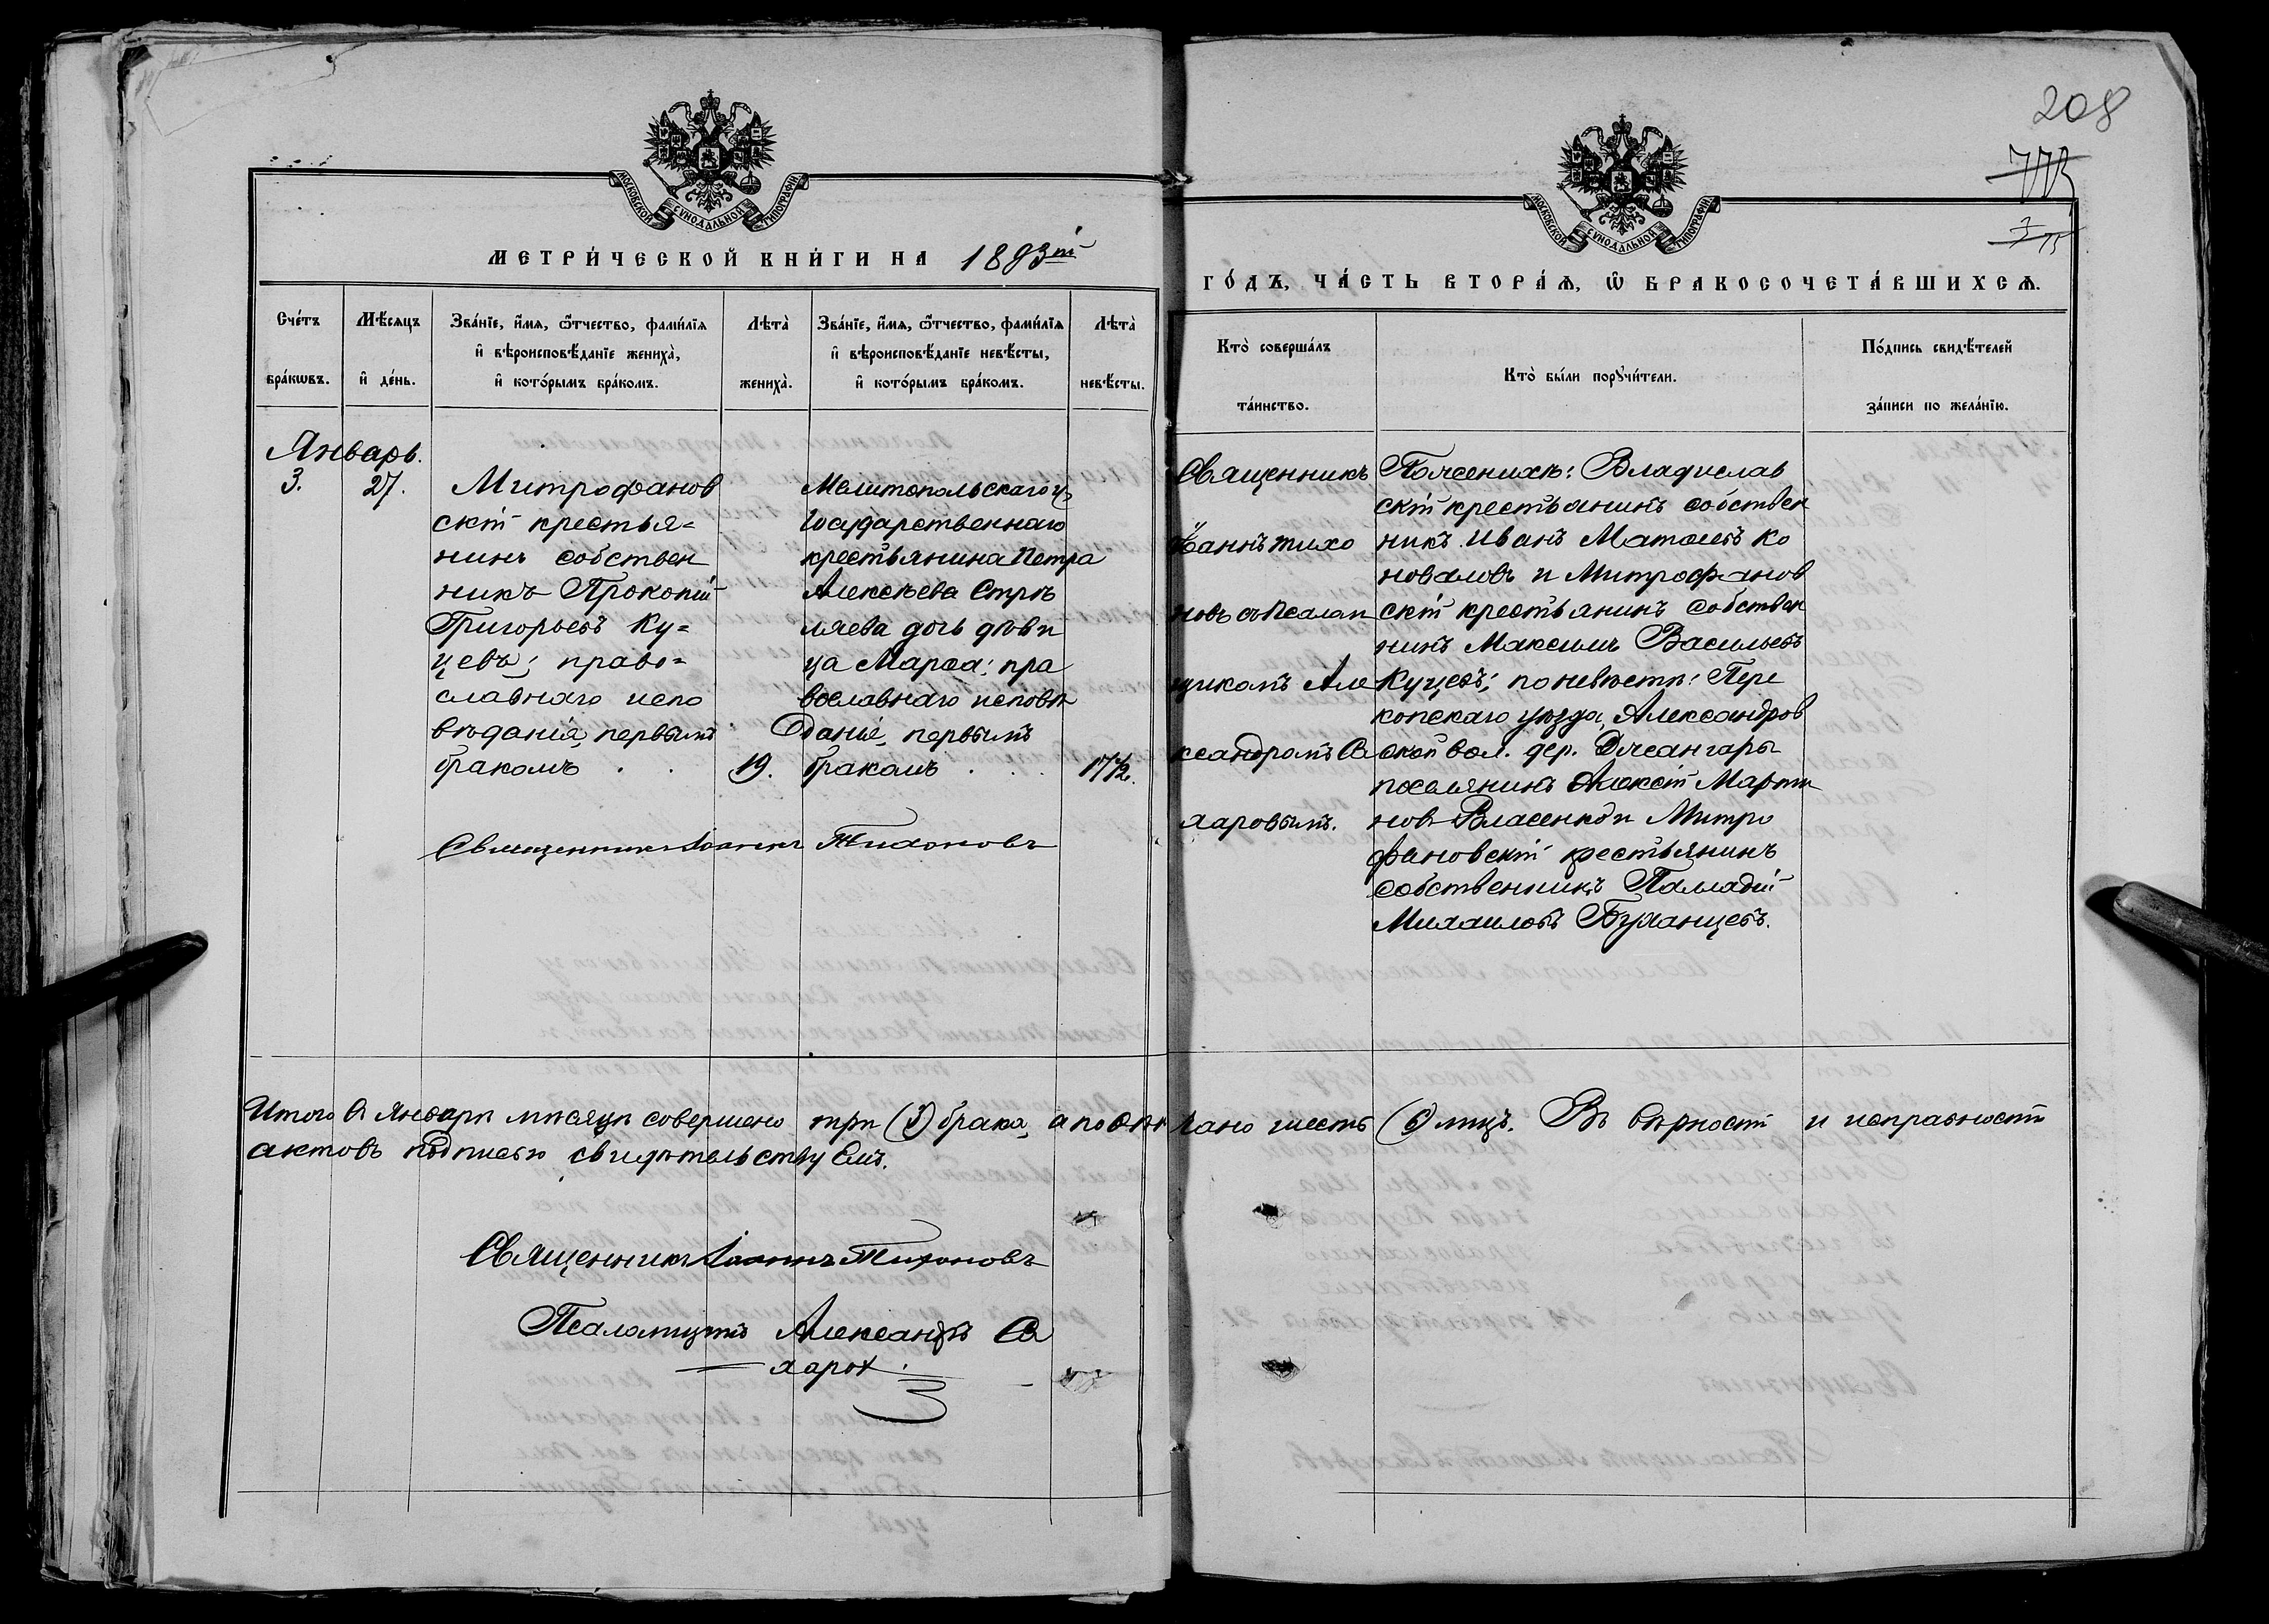 208
МОСКОВСКОЙ СУНОДАЛЬНОЙ ТИПОГРАФІИ
МОСКОВСКОЙ СУНОДАЛЬНОЙ ТИПОГРАФІИ
МЕТРИ́ЧЕСКОЙ КНИ́ГИ НА 1893ій
ГО́ДЪ, ЧА́СТЬ ВТОРА́Ѧ, Ѽ БРАКОСОЧЕТА́ВШИХСѦ.
Сче́тъ бра́кѡвъ.
Мѣ́сяцъ и҆ де́нь.
Зва́нїе, и҆́мѧ, ѻ҆́тчество, фами́лїѧ
и҆ вѣроисповѣ́данїе жениха̀,
и҆ кото́рымъ бра́комъ.
Лѣта̀ жениха̀.
Зва́нїе, и҆́мѧ, ѻ҆́тчество, фами́лїѧ
и҆ вѣроисповѣ́данїе невѣ́сты,
и҆ кото́рымъ бра́комъ.
Лѣта̀ невѣ́сты.
Кто̀ соверша́лъ та́инство.
Кто̀ бы́ли порꙋчи́тели.
По́дпись свидѣ́телей за́писи по жела́нїю.
Январь.
3.
27.
Митрофанов
скій крестья=
нинъ собствен
никъ Прокопій
Григорьевъ Ку=
цевъ; право=
славнаго испо
вѣданія, первымъ
бракомъ . .
19.
Мелитопольскаго у.
Государственнаго
крестьянина Петра
Алексѣева Стрѣ
ляева дочь дѣви
ца Марѳа; пра
вославнаго исповѣ
данія, первымъ
бракомъ . . .
17½.
Священникъ Іоаннъ Тихоновъ
Священникъ
Іоаннъ Тихо
новъ съ Псалом
щикомъ Але
ксандромъ Са
харовымъ.
По женихѣ: Владислав
скій крестьянинъ собствен
никъ Иванъ Матвѣевъ Ко
новаловъ и Митрофанов
скій крестьянинъ собствен
никъ Максимъ Васильевъ
Куцевъ; по невѣстѣ: Пере
копскаго уѣзда, Александров
ской вол. дер. Джангары
поселянинъ Алексѣй Марти
новъ Власенко и Митро
фановскій крестьянинъ
собственникъ Палладій
Михаиловъ Буханцевъ.
Итого въ Январѣ мѣсяцѣ совершено три (3) брака, а повѣн чано шесть (6) лицъ. Въ вѣрности и исправности
актовъ подписью свидѣтельствуемъ.
Священникъ Іоаннъ Тихоновъ
Псаломщикъ Александръ Са
харовъ.